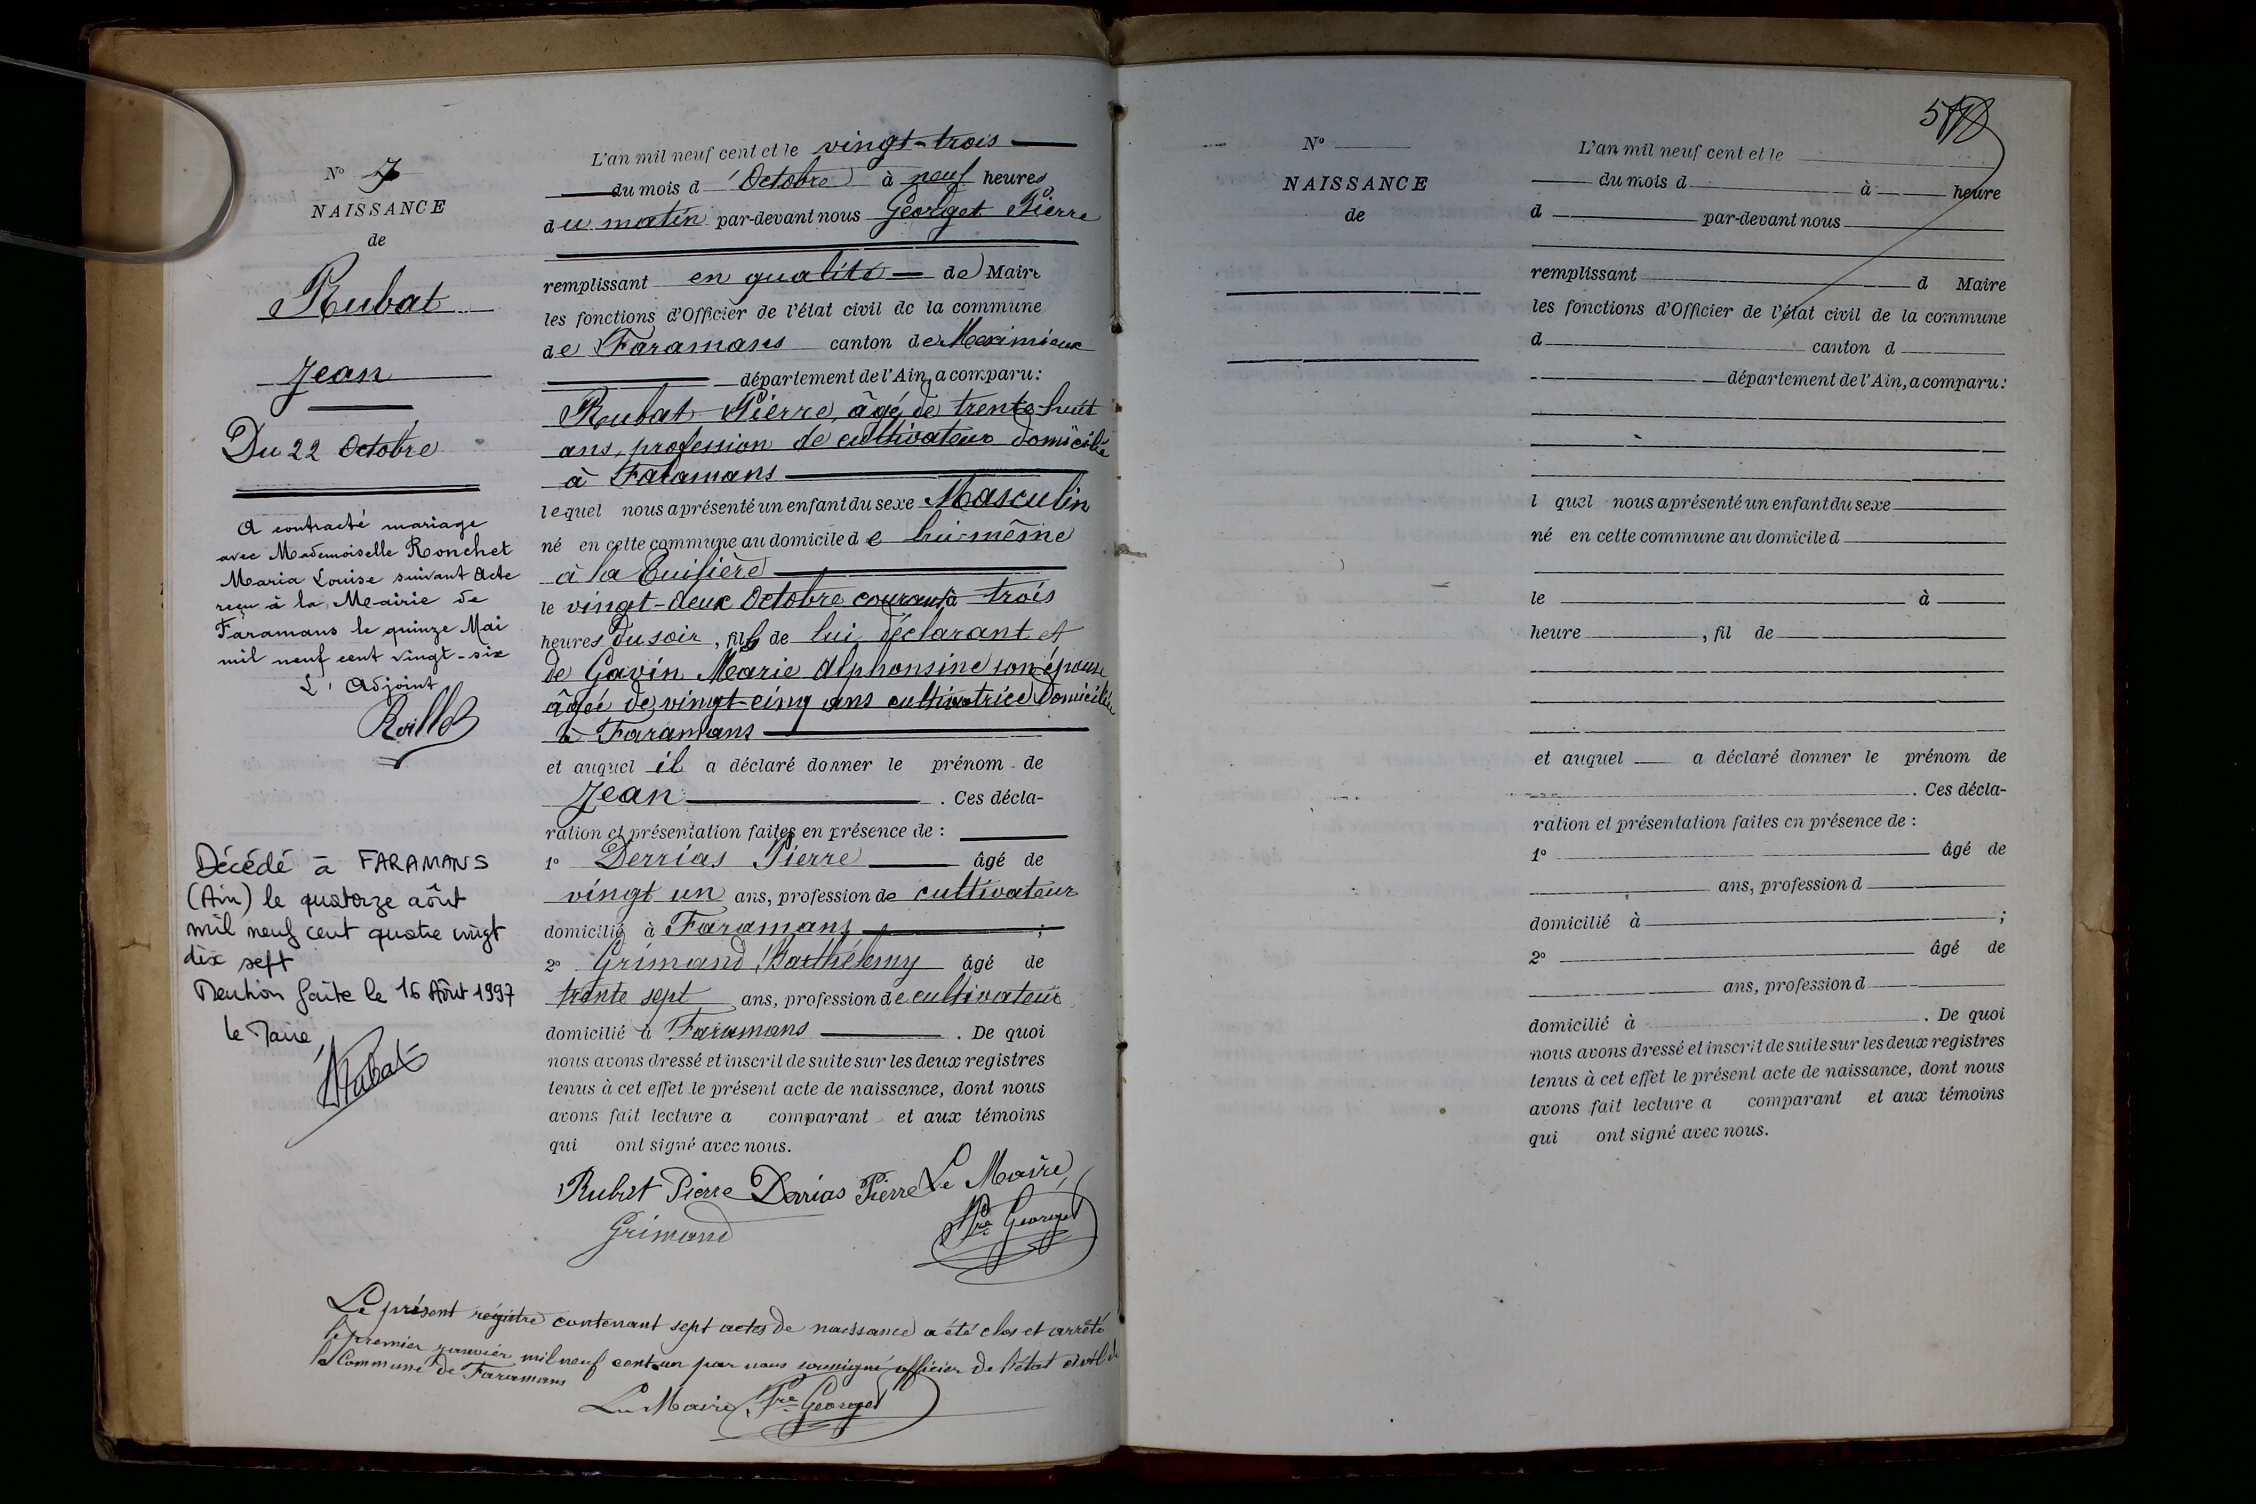 N° 7
NAISSANCE
de
Rubat
Jean
Du 22 Octobre
A contracté mariage
avec Mademoiselle Ronchet
Maria Louise suivant Acte
reçu à la Mairie de
Faramans le quinze Mai
mil neuf cent vingt-six
L'Adjoint
Décédé à FARAMANS
(Ain) le quatorze août
mil neuf cent quatre vingt
dix sept
Mention faite le 16 Août 1997
le Maire,
Rubat
L'an mil neuf cent et le vingt-trois
du mois d'Octobre à neuf heures
du matin par-devant nous Georget Pierre
remplissant en qualité de Maire
les fonctions d'Officier de l'état civil de la commune
de Faramans canton de Meximieux
département de l'Ain, a comparu:
Rubat Pierre, âgé de trente-huit
ans, profession de cultivateur domicilié
à Faramans
lequel nous a présenté un enfant du sexe Masculin
né en cette commune au domicile de lui-même
à la Tuilière
le vingt-deux Octobre courant à trois
heures du soir, fils de lui déclarant et
de Gavin Marie Alphonsine son épouse
âgée de vingt-cinq ans cultivatrice domiciliée
à Faramans
et auquel il a déclaré donner le prénom de
Jean. Ces décla-
ration et présentation faites en présence de :
1° Derrias Pierre âgé de
vingt un ans, profession de cultivateur
domicilié à Faramans ;
2° Grimand Barthélemy âgé de
trente sept ans, profession de cultivateur
domicilié à Faramans. De quoi
nous avons dressé et inscrit de suite sur les deux registres
tenus à cet effet le présent acte de naissance, dont nous
avons fait lecture a comparant et aux témoins
qui ont signé avec nous.
Rubat Pierre Derrias Pierre Le Maire,
Grimand Pre Georget
Le présent régistre contenant sept actes de naissance a été clos et arrêté
le premier janvier mil neuf cent un par nous soussigné officier de l'état civil de
la Commune de Faramans
Le Maire, Pre Georget
N°
NAISSANCE
de
L'an mil neuf cent et le
du mois d à heure
d par-devant nous
remplissant d Maire
les fonctions d'Officier de l'état civil de la commune
d canton d
département de l'Ain, a comparu:
l quel nous a présenté un enfant du sexe
né en cette commune au domicile d
le à
heure , fil de
et auquel a déclaré donner le prénom de
. Ces décla-
ration et présentation faites en présence de :
1° âgé de
ans, profession d
domicilié à ;
2° âgé de
ans, profession d
domicilié à . De quoi
nous avons dressé et inscrit de suite sur les deux registres
tenus à cet effet le présent acte de naissance, dont nous
avons fait lecture a comparant et aux témoins
qui ont signé avec nous.